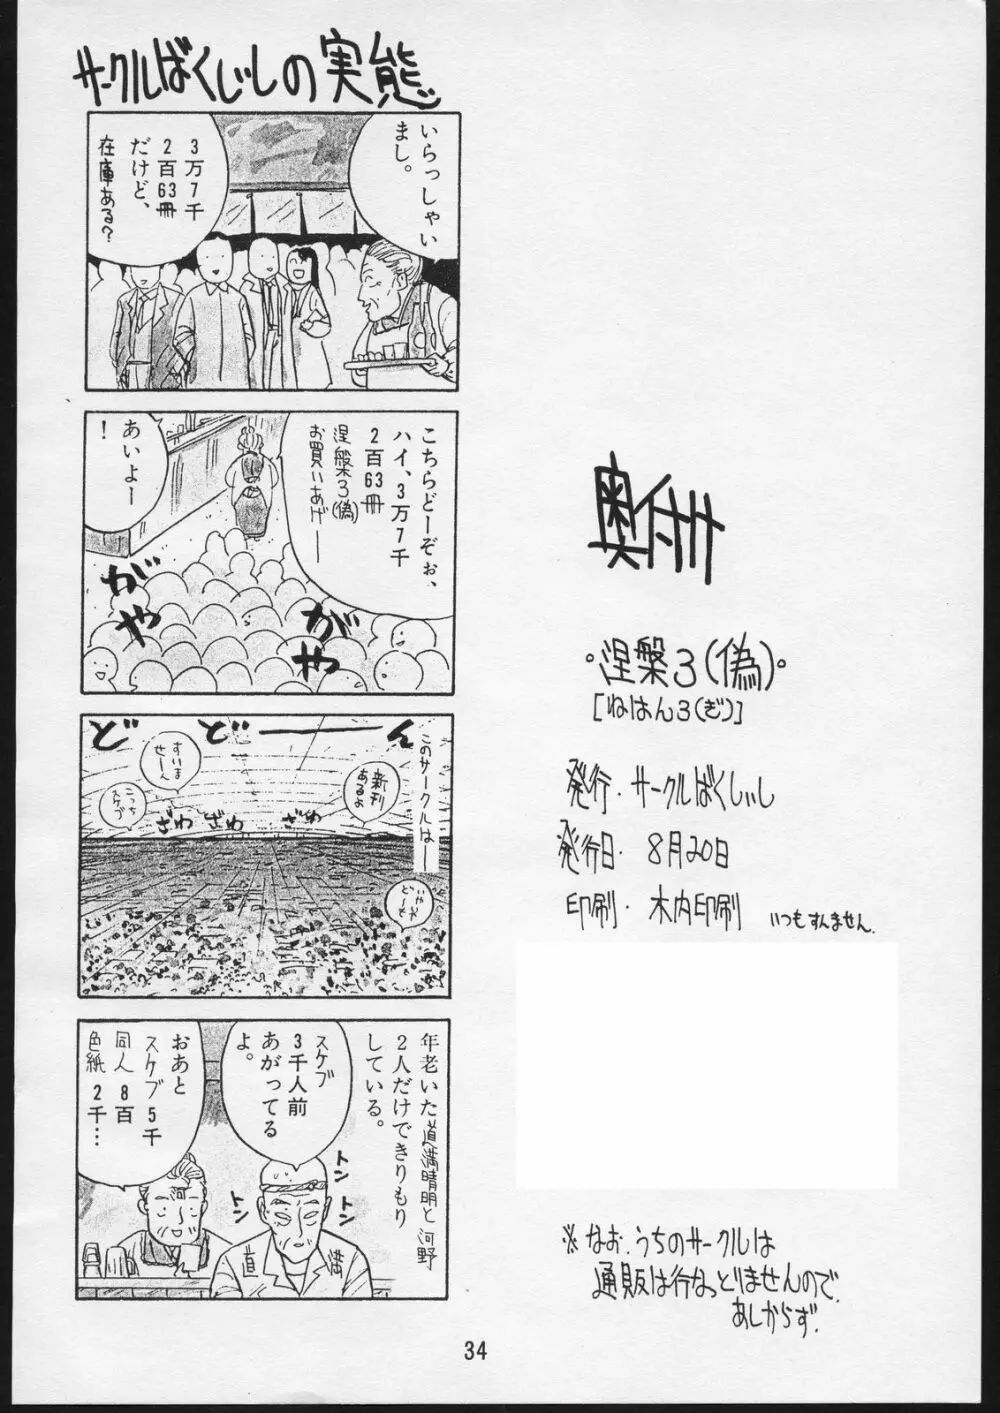 サークルばくしいしの実態
いらっしゃい
まし。
3万7千
2百63冊
だけど、
在庫ある?
こちらどーぞぉ、
ハイ、3万7千
2百63冊
涅槃3(偽)
お買いあげ──
あいよー
!
がや
がや
ど ど──ん
このサークルは──
新刊
あるよ
すいま
せーん
こっち
スケブ
ざわ ざわ ざわ
年老いた道満晴明と河野
2人だけできりもり
している。
スケブ
3千人前
あがってる
よ。
おあと
スケブ5千
同人8百
色紙2千…
トン
トン
トン
トン
河
道満
奥付
・涅槃3(偽)・
[ねはん3(ぎ)]
発行・サークルばくしいし
発行日・8月20日
印刷・木内印刷 いつもすんません.
※なお、うちのサークルは
通販は行なっとりませんので.
あしからず.
34